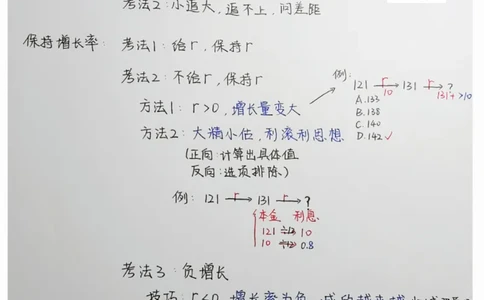 考法2：小追大，追不上，问差距
保持增长率：考法1：给r，保持r
考法2：不给r，保持r
方法1：r>0，增长量变大
方法2：大桶小估，利滚利思想
(正向：计算出具体值
反向：选项排除)
例：121 —r→ 131 —r→ ?
10 131+>10
A.133
B.138
C.140
D.142✓
例：121 —r→ 131 —r→ ?
本金 利息
121 ÷12 10
10 ÷12 0.8
考法3：负增长
技巧：r<0，增长率为负，